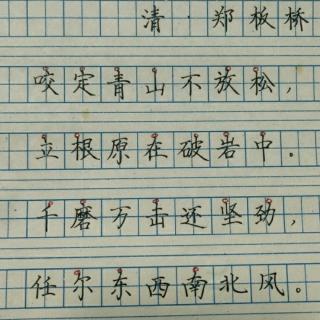 清·郑板桥
咬定青山不放松，
立根原在破岩中。
千磨万击还坚劲，
任尔东西南北风。